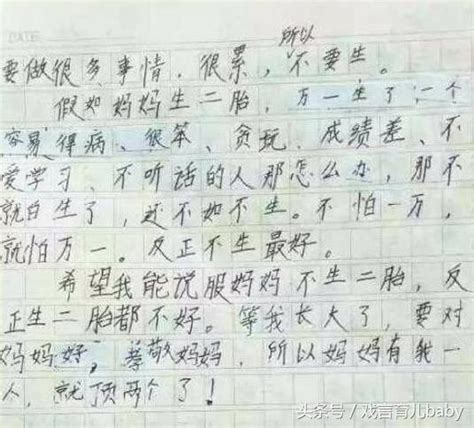 DATE
所以
要做很多事情，很累，不要生。
假如妈妈生二胎，万一生了一个
容易得病、很笨、贪玩、成绩差、不
爱学习、不听话的人那怎么办，那不
就白生了，还不如不生。不怕一万，
就怕万一。反正不生最好。
希望我能说服妈妈不生二胎，反
正生二胎都不好。等我长大了，要对
妈妈好，孝敬妈妈，所以妈妈有我一
人，就顶两个了！
头条号/戏言育儿baby